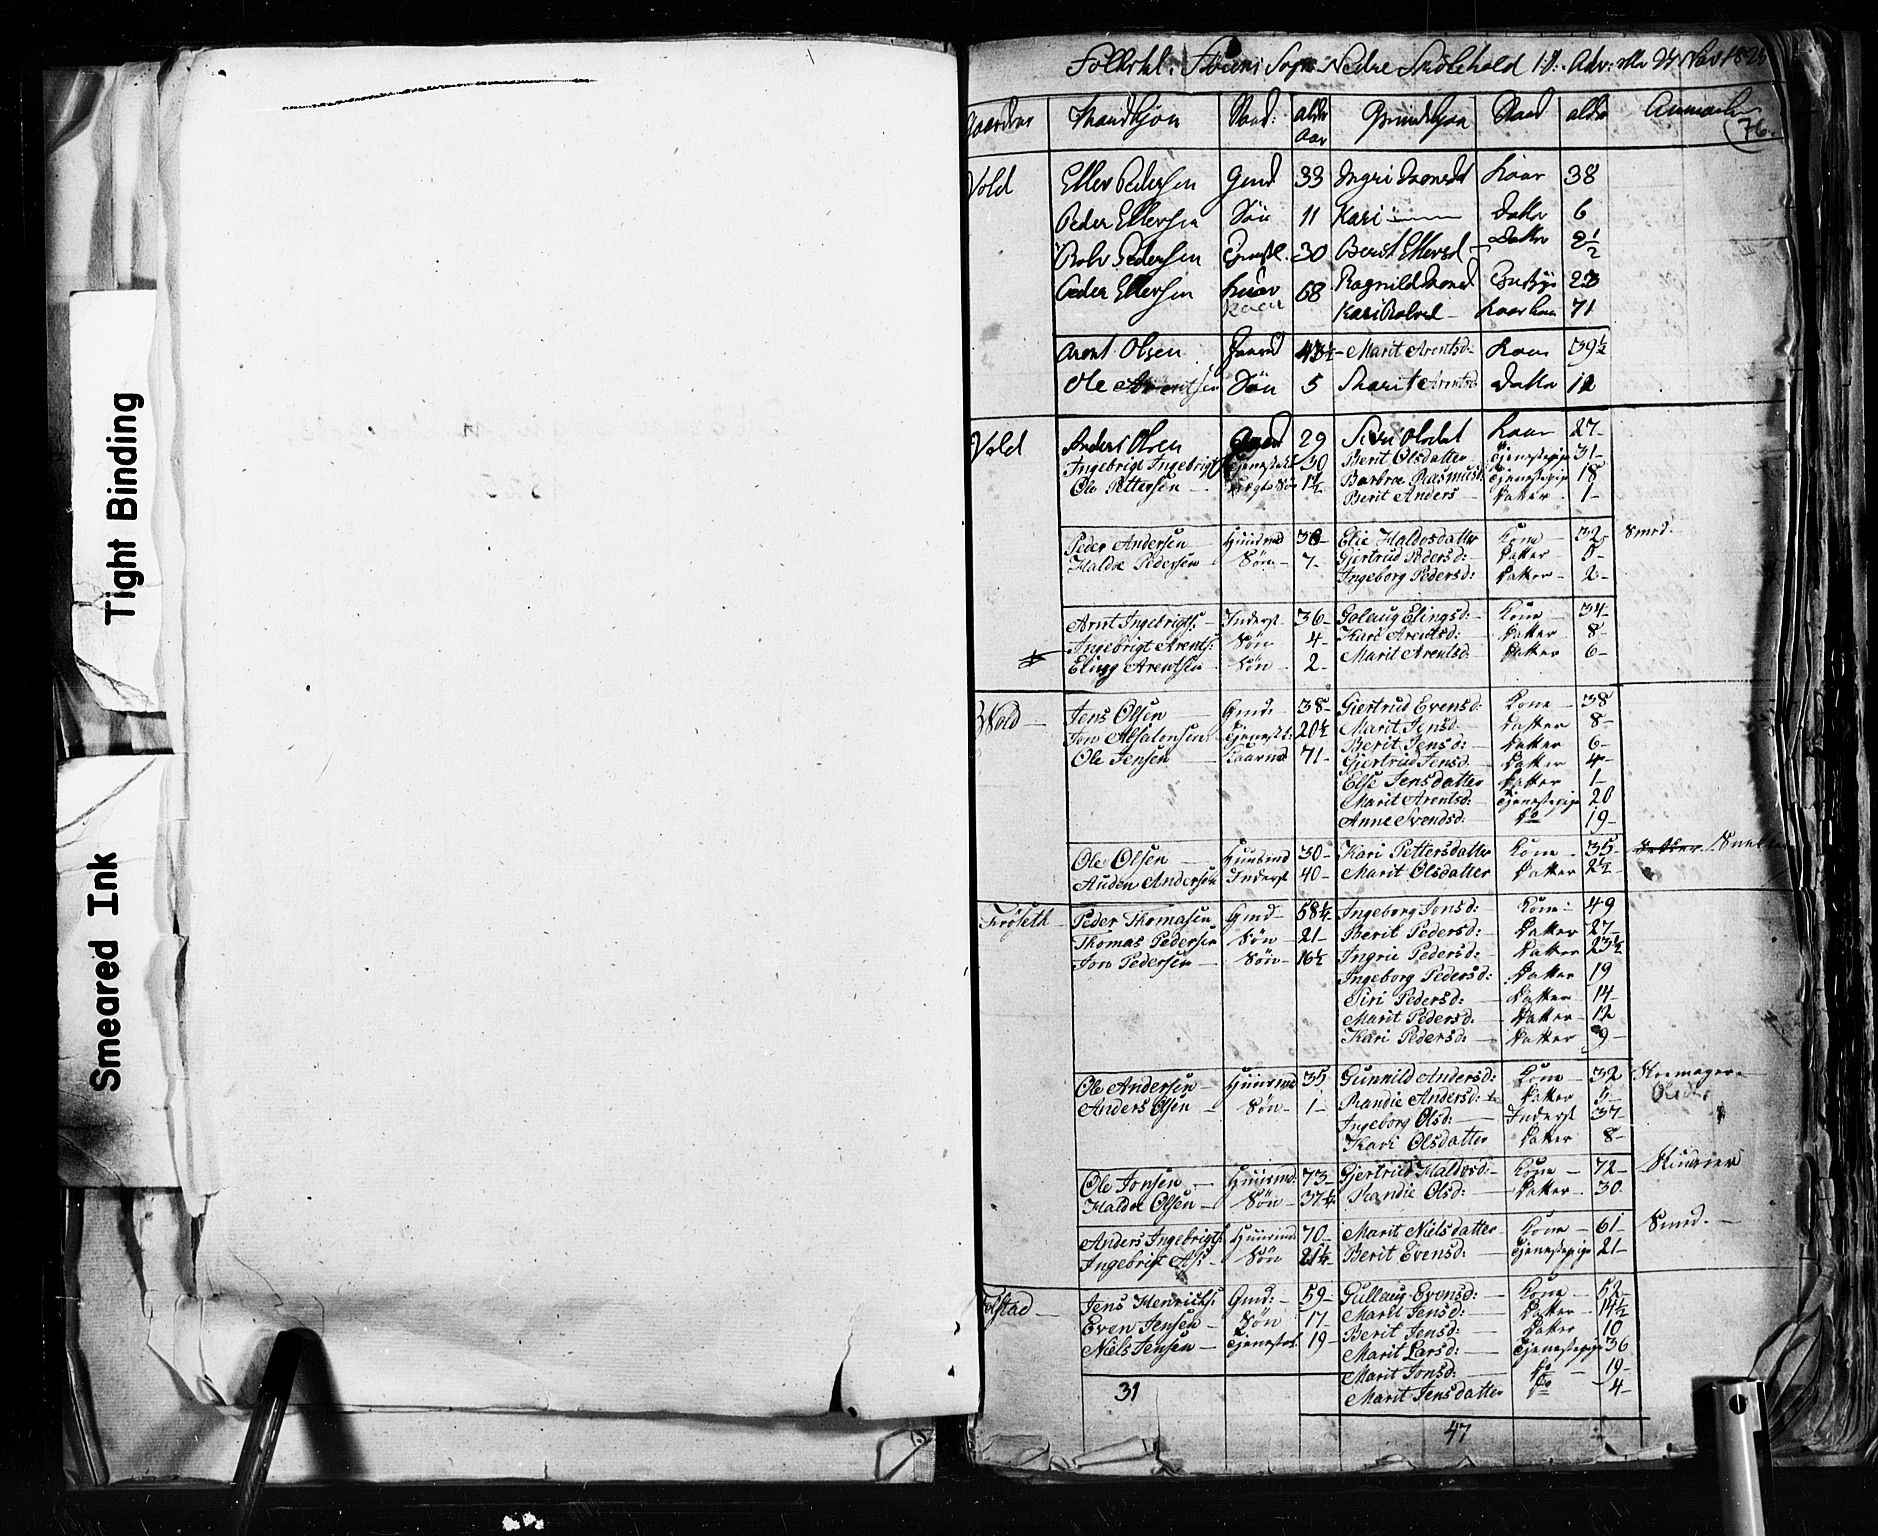 Tight Binding
Smeared Ink
Folketal: Størens Sogn Nedre
76.
Mandkjøn Stand: alder aar Qvindkjøn Stand alder Anmærk
Vold Ellev Pedersen Gmd 33 Ingri 38
Peder Ellevsen Søn 11 Kari Datter 6
Rolv Pedersen 30 Berit Ellevsd Datter 2½
Peder Ellevsen 68 Ragnild
Kari 71
Arent Olsen 43½ Marit Arentsd: Kone 39½
Ole Arentsen Søn 5 Marit Arentsd Datter 12
Vold Anders Olsen Gmd 29 Siri Olsdat Kone 27
Ingebrigt Ingebrigts 30 Berit Olsdatter Tjenestepige 31
Ole Pettersen 1½ Barbroe Rasmusd: Tjenestepige 18
Berit Anders Datter 1
Peder Andersen Huusmd 38 Elie Haldosdatter Kone 32 Smed.
Haldoe Pedersen Søn 7 Gjertrud Pedersd: Datter 5
Ingeborg Pedersd: Datter 2
Arnt Ingebrigts: Inderst 36 Golaug Elingsd: Kone 34
Ingebrigt Arents: Søn 4 Kari Arentsd: Datter 8
Eling Arentsen Søn 2 Marit Arentsd Datter 6
Wold Jens Olsen Gmd: 38 Giertrud Evensd: Kone 38
Jon Absalonsen Tjenestk: 20½ Marit Jensd: Datter 8
Ole Jensen Kaarmd 71 Berit Jensd: Datter 6
Gjertrud Jensd: Datter 4
Else Jensdatter Datter 1
Marit Arentsd: Tjenestepige 20
Anne Svendsd: do 19
Ole Olsen Huusmd 30 Kari Pettersdatter Kone 35
Auden Andersen Inderst 40 Marit Olsdatter Datter 2½
Frøseth Peder Thomasen Gmd 58½ Ingeborg Jonsd: Kone 49
Thomas Pedersen Søn 21 Berit Pedersd: Datter 27
Jon Pedersen Søn 16½ Ingrie Pedersd: Datter 23½
Ingeborg Pedersd: Datter 19
Siri Pedersd: Datter 14
Marit Pedersd: Datter 12
Kari Pedersd: Datter 9
Ole Andersen Huusmd 35 Gunnild Andersd: Kone 32 Skomager
Anders Olsen Søn 1 Randie Andersd: Datter 5
Ingeborg Olsd: Inderst 37
Kari Olsdatter Datter 8
Ole Jonsen Huusmd: 73 Gjertrud Haldosd: Kone 72
Haldoe Olsen Søn 37½ Randie Olsd: Datter 30
Anders Ingebrigts: Huusmd: 70 Marit Nielsdatter Kone 61 Smed.
Ingebrigt As: Søn 21½ Berit Evensd: Tjenestepige 21
Folstad Jens Henrichs: Gmd: 59 Gullaug Evensd: Kone 52
Even Jensen Søn 17 Marit Jensd: Datter 14½
Niels Jensen Tjenestek 19 Berit Jensd: Datter 10
Marit Larsd: Tjenestepige 36
Marit Jonsd: do 19
Marit Jensdatter do 4
31
47